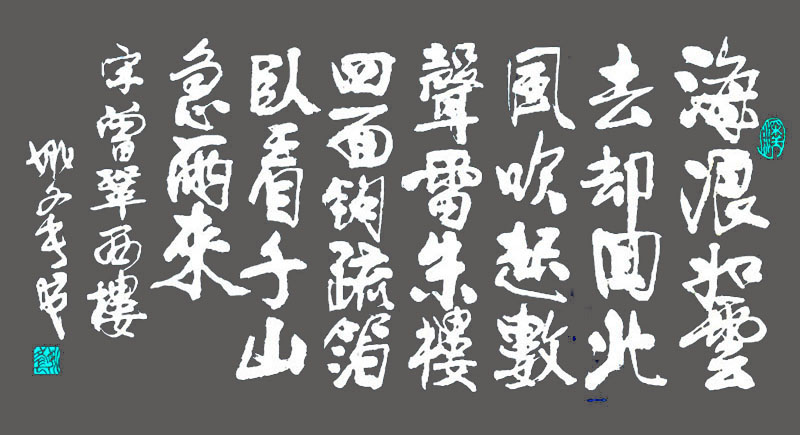 海浪如雲
去却回北
風吹起數
聲雷朱樓
四面鉤疏箔
臥看千山
急雨來
宋曾鞏西樓
姚